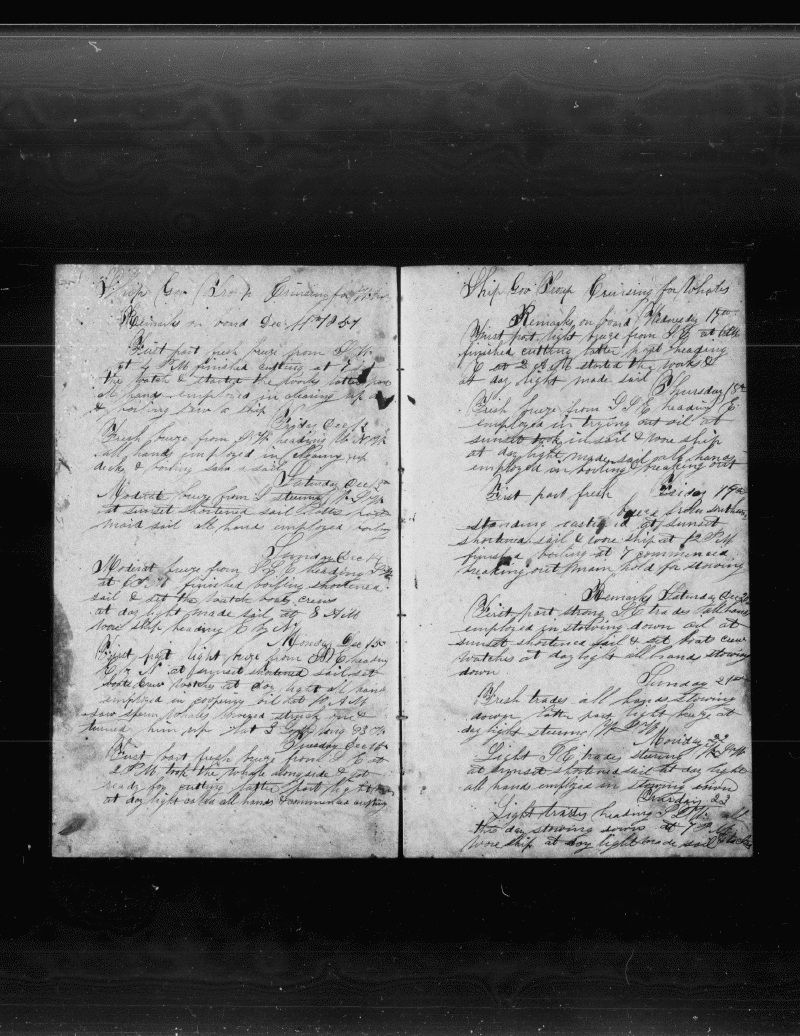 Ship Gov Troup Cruising for Whales
Remarks on board Dec 11th 1857
First part fresh breeze from
at 4 P M finished cutting at 7
the watch & started the works latter part
All hands employed in clearing up
& boiling saw a ship
Friday Dec
Fresh breeze from heading
all hands employed in cleaning up
decks & boiling saw a sail
Saturday Dec
Moderat breeze from S steering
at sunset shortened sail
maid sail All hands employed boiling
Sunday Dec 14
Moderat breeze from S E heading
at 6 P M finished boiling shortened
sail & set the watch boats crew
at day light made sail at 8 A M
wore ship heading E by N
Monday Dec 15
First part light breeze from heading
E by N at sunset shortened sail set
boats crew watches at day light all hands
employed in coopering oil at 10 A M
saw sperm whales lowered struck one &
turned him up
Tuesday Dec 16
First part fresh breeze from S E at
2 P M took the whale alongside & got
ready for cutting latter part
at day light called all hands & commenced cutting
Ship Gov Troup Cruising for Whales
Remarks on board Wednesday 17th
First part light breeze from S E at
finished cutting latter part heading
E at 2 P M started the works &
at day light made sail
Thursday 18th
Fresh breeze from S S E heading E
employed in trying out oil at
sunset took in sail & wore ship
at day light made sail all hands
employed in boiling & breaking out
First part fresh Friday 19th
breeze from Southern
standing eastward at sunset
shortened sail & wore ship at 12 P M
finished boiling at 7 commenced
breaking out main hold for stowing
Remarks Saturday Dec 20
First part strong S E trades all hands
employed in stowing down oil at
sunset shortened sail & set boat crew
watches at day light all hands stowing
down
Sunday 21st
Fresh trades all hands stowing
down latter part light breeze at
day light steering W S W
Monday 22
Light S E trades steering W S W
at sunset shortened sail at day light
all hands employed in stowing down
Tuesday 23
Light trades heading all
the day stowing down at 7 P M
wore ship at day light made sail